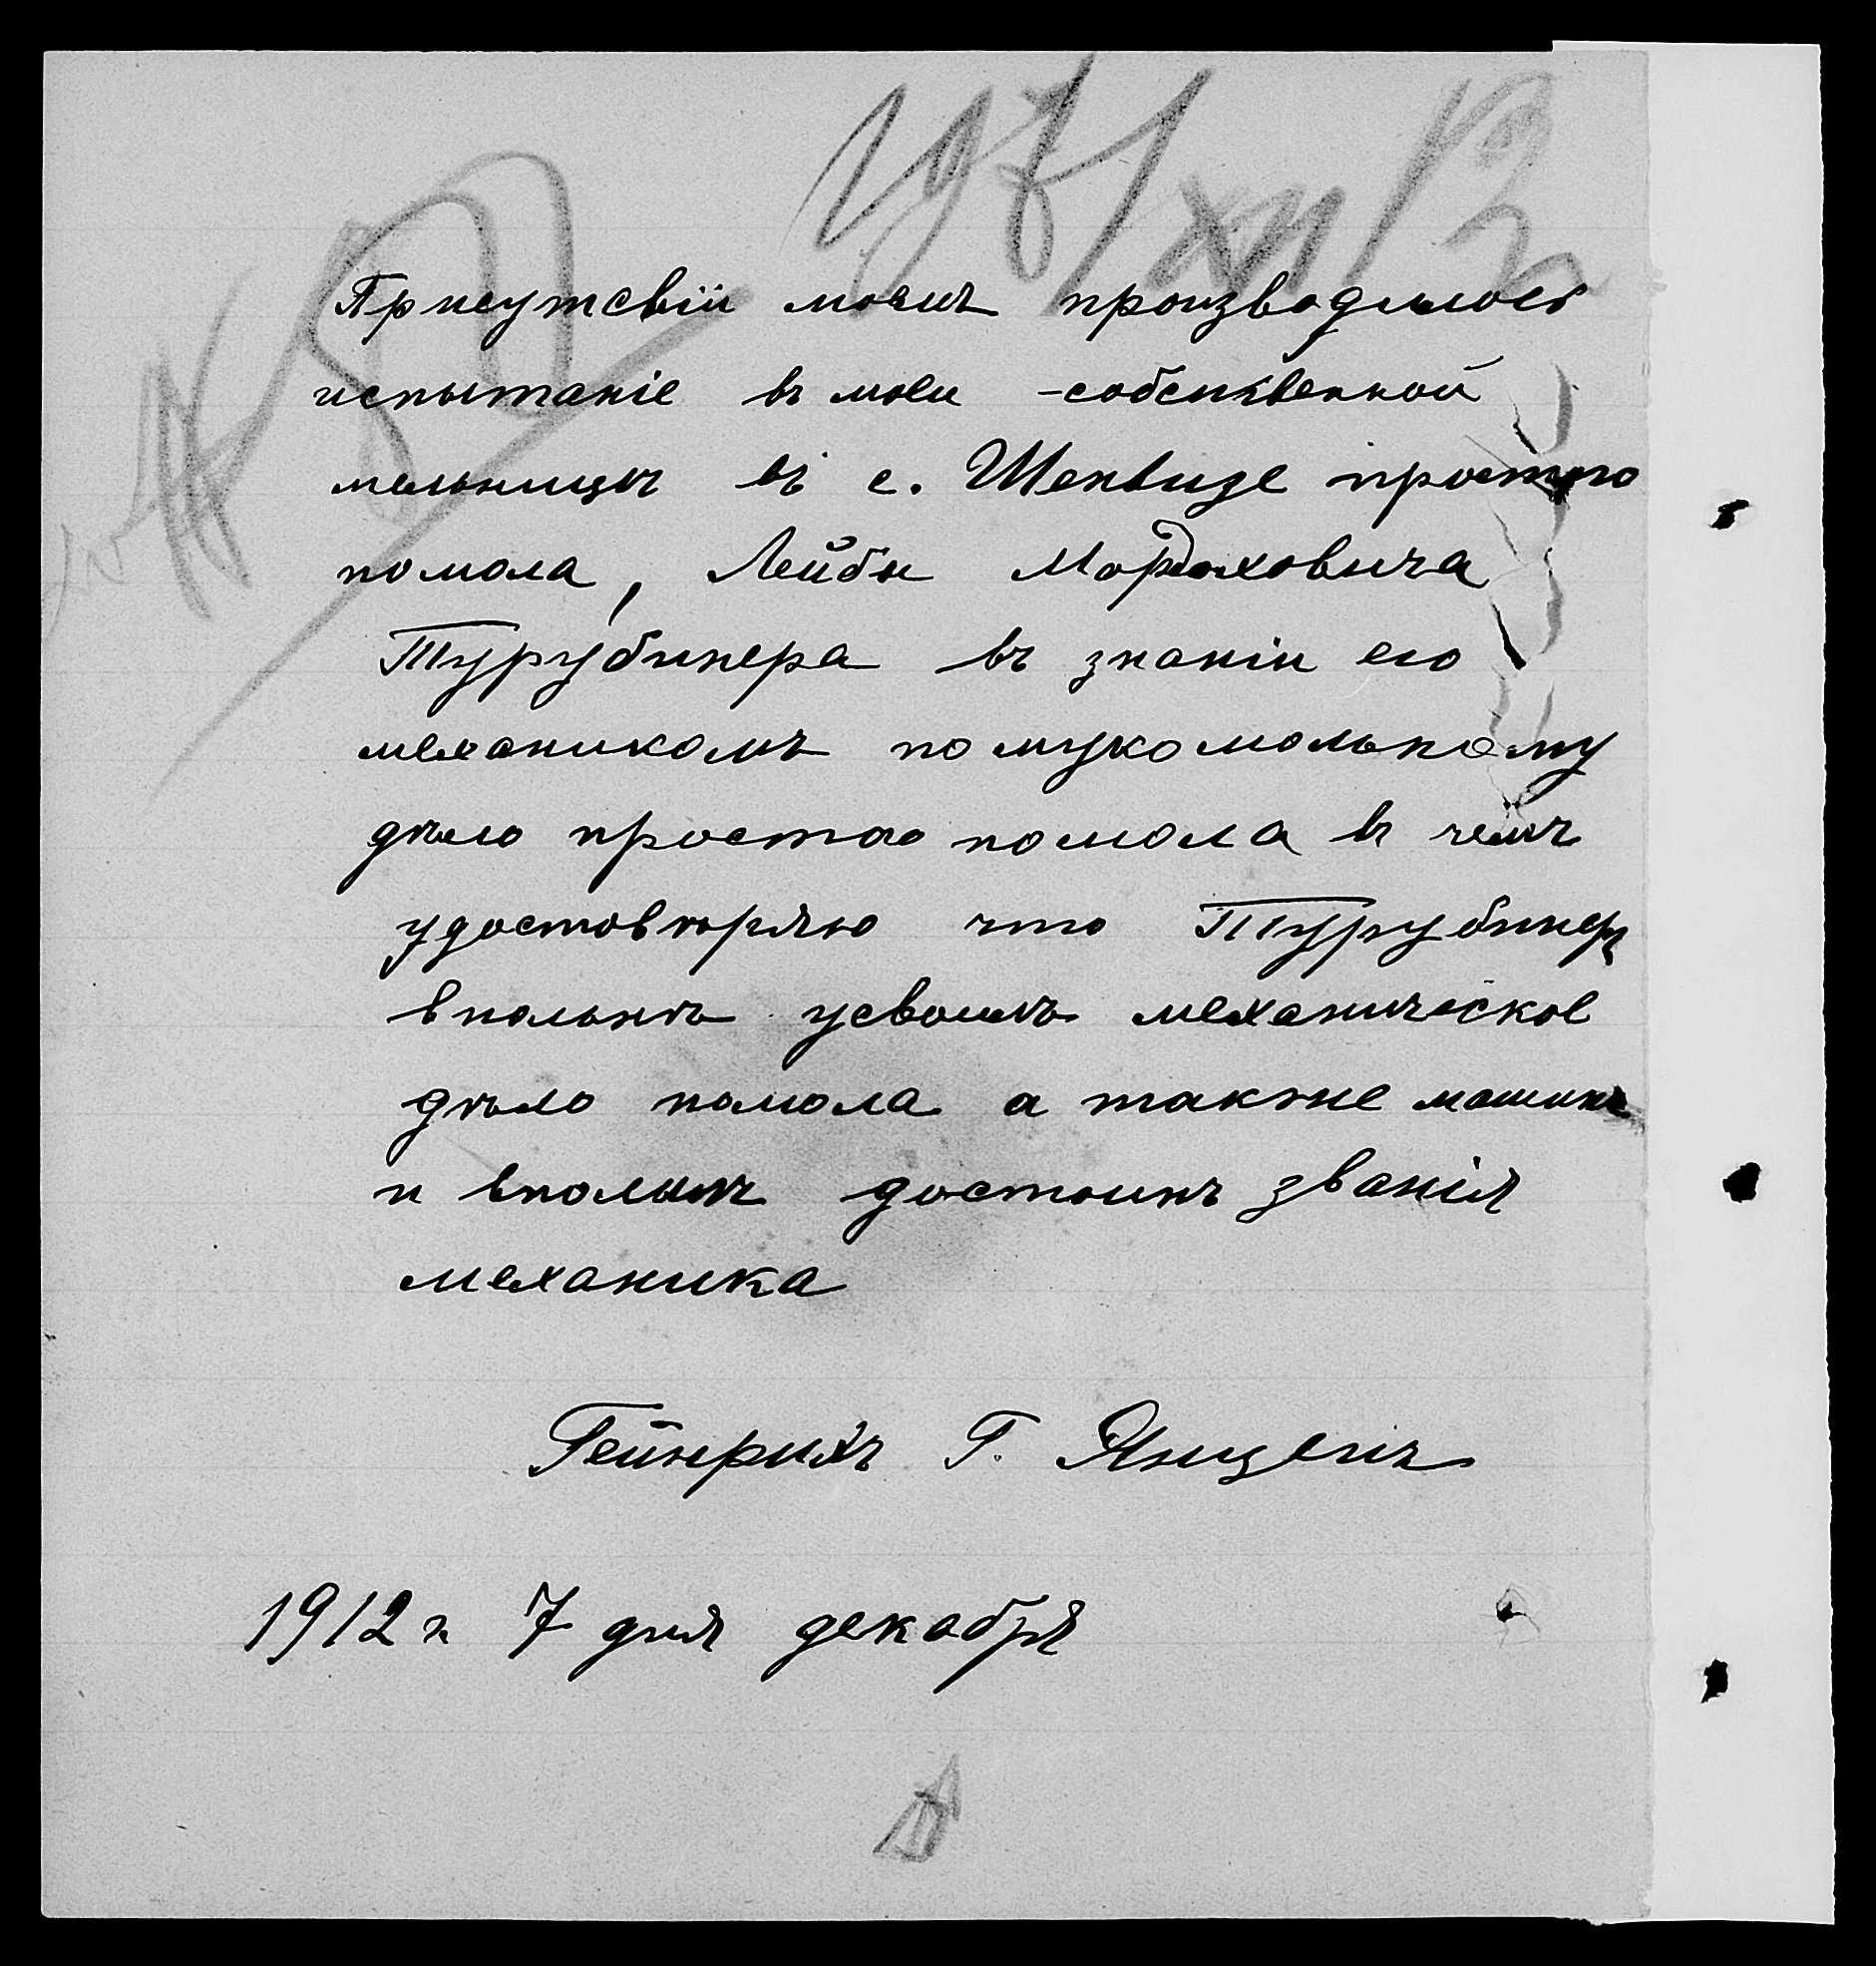 Присутсвіи моемъ производилось
испытаніе въ моеи -собственной
мельницѣ въ с. Шенвизе простого
помола, Лейбы Мордаховича
Турубинера въ знаніи его
механикомъ по мукомольному
дѣло простого помола въ чемъ
удостовѣряю что Турубинер
впольнѣ усвоилъ механическое
дѣло помола а также машины
и вполнѣ достоинъ званія
механика
Гейнрихъ Г. Янценъ
1912 г. 7 дня декабря